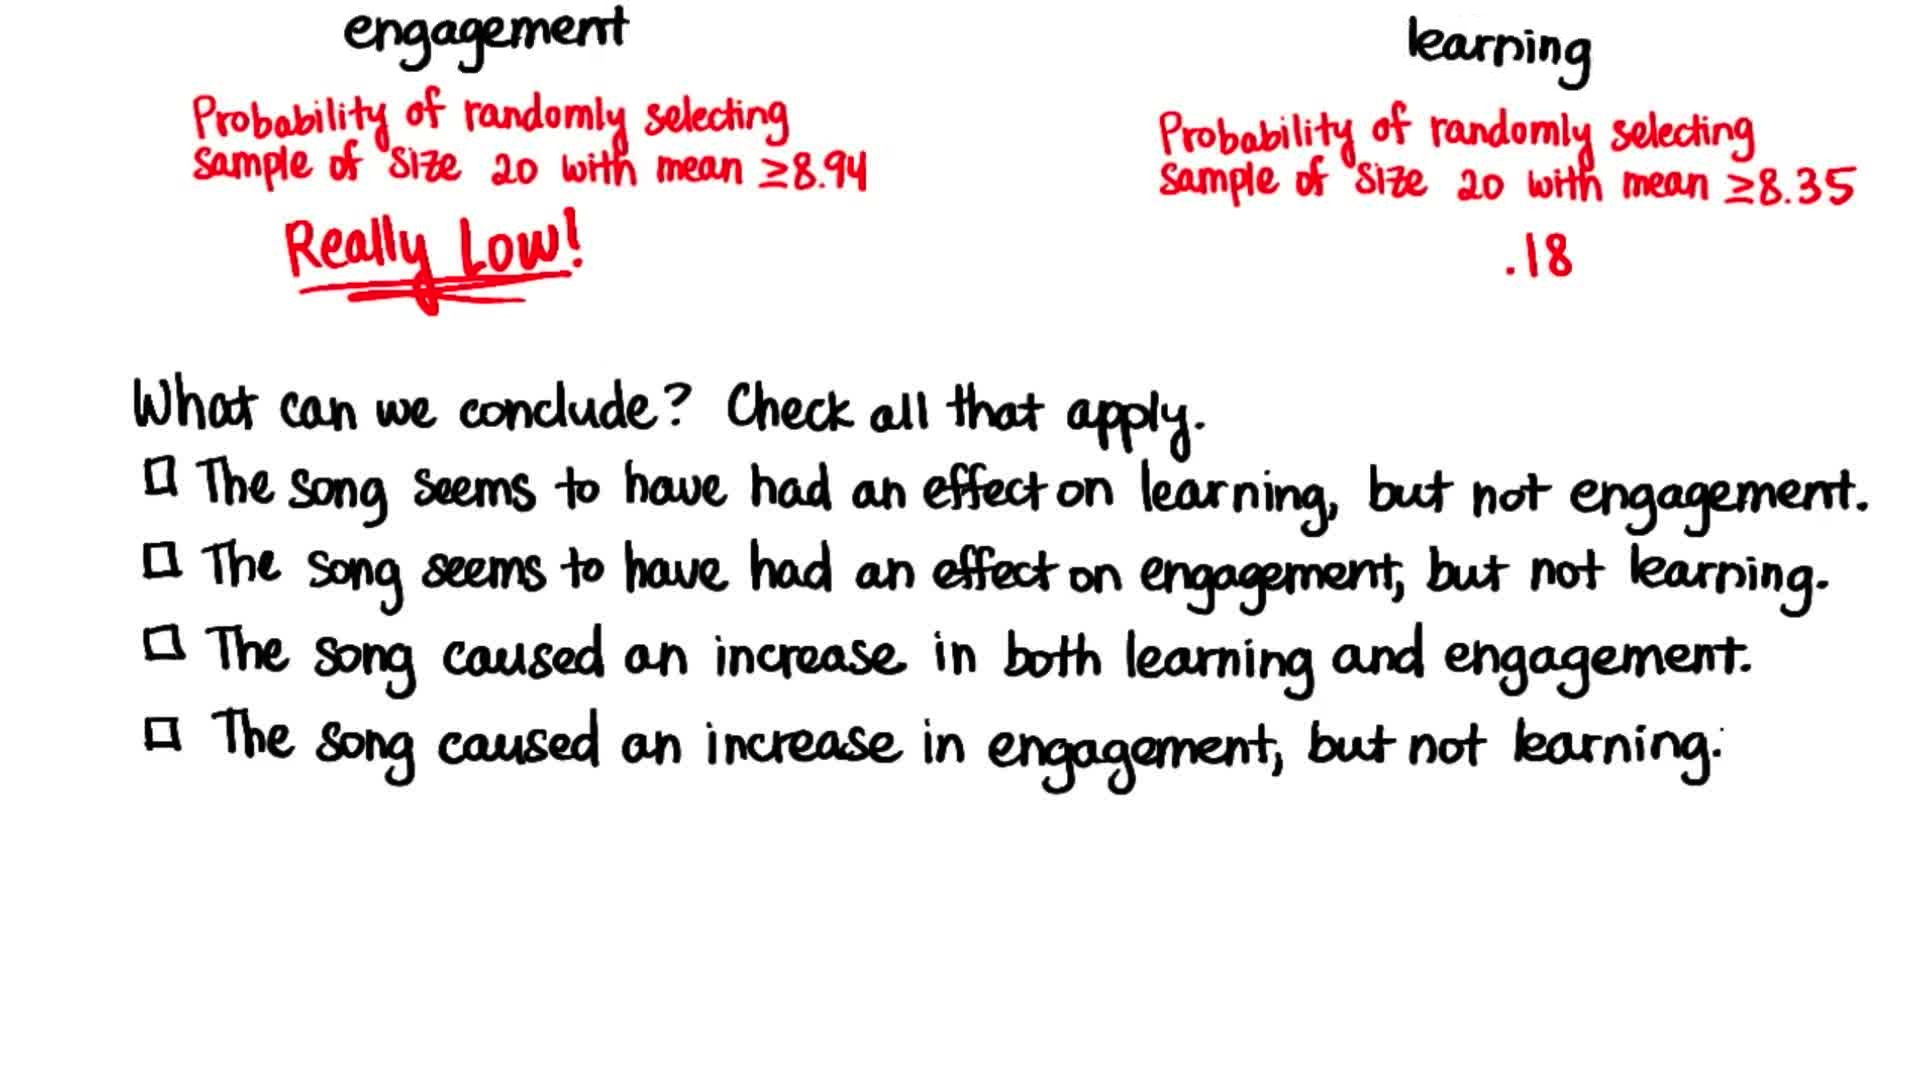 engagement
learning
Probability of randomly selecting
sample of size 20 with mean ≥8.94
Really Low!
Probability of randomly selecting
sample of size 20 with mean ≥8.35
.18
What can we conclude? Check all that apply.
The song seems to have had an effect on learning, but not engagement.
The song seems to have had an effect on engagement, but not learning.
The song caused an increase in both learning and engagement.
The song caused an increase in engagement, but not learning.